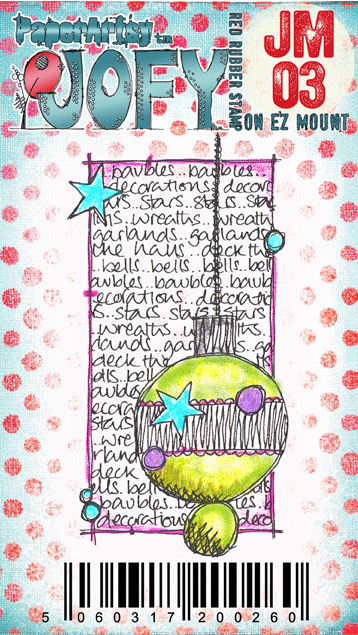 PaperArtsy™
JOFY
RED RUBBER STAMP
ON EZ MOUNT
JM
03
baubles.. baubles..
decorations.. decor
stars.. stars.. stars
wreaths.. wreath
garlands.. garlands
deck the
bells.. bells.. bells.. bell
aubles.. baubles.. baub
ecorations.. decorat
s.. stars.. stars.. stars
wreaths
lands.. gar
deck the
lls.. bell
decora
wre
rland
deck
lls.. bell
baubles.. bau
decorations.. deco
5 060317 200260